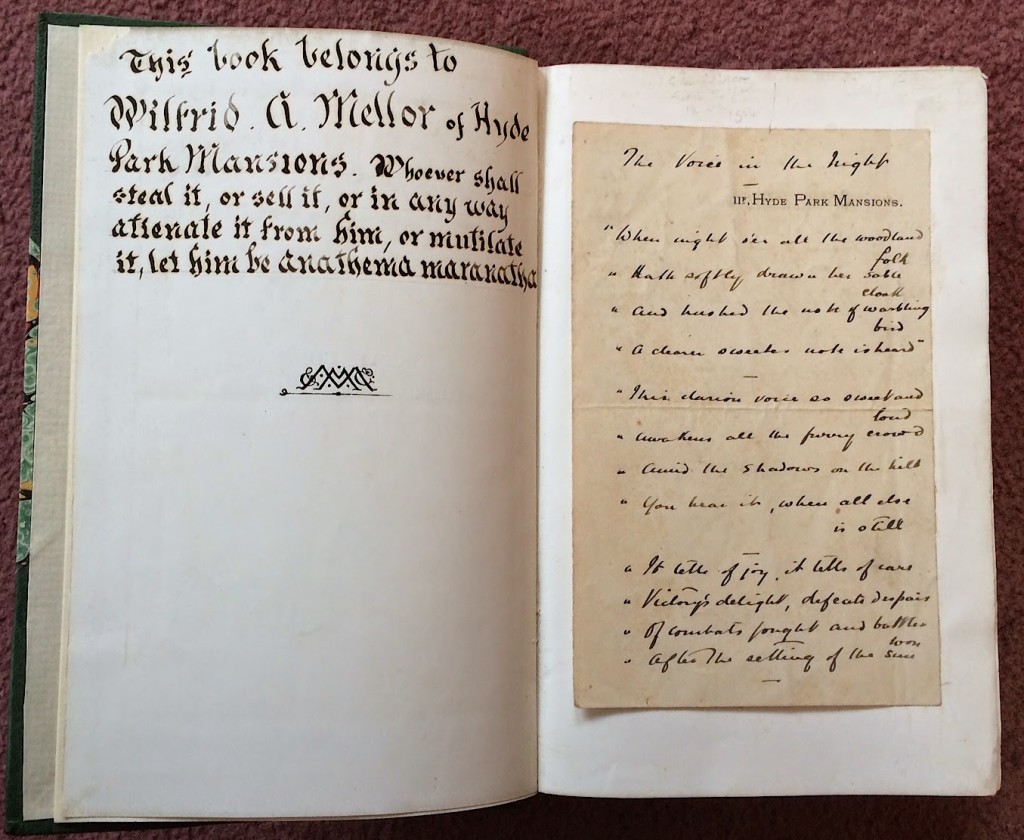 This book belongs to
Wilfrid. A. Mellor of Hyde
Park Mansions. Whoever shall
steal it, or sell it, or in any way
alienate it from him, or mutilate
it, let him be anathema maranatha
The Voice in the Night
111, HYDE PARK MANSIONS.
"When night o'er all the woodland
folk
" Hath softly drawn her sable
cloak
" And hushed the note of warbling
bird
" A clearer sweeter note is heard"
"This clarion voice so sweet and
loud
" Awakens all the furry crowd
" Amid the shadows on the hill
" You hear it, when all else
is still
" It tells of joy, it tells of care
" Victory's delight, defeats despair
" Of combats fought and battles
won
" After the setting of the sun